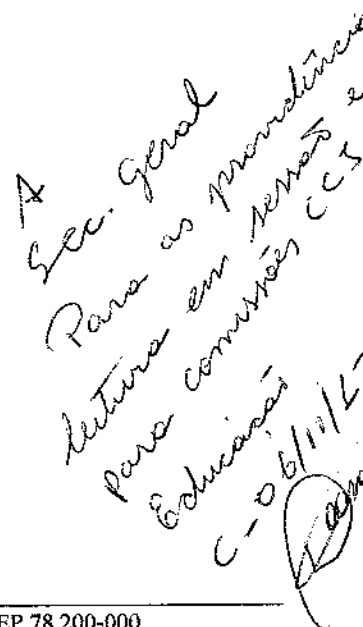 A
Sec. Geral
Para as providência
leitura em sessão e
para comissões CCJ
Educação
EP 78.200-000